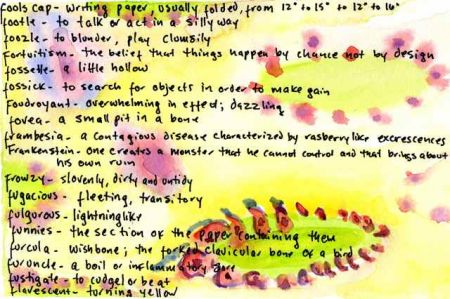 Fools cap - writing paper, usually folded, from 12" to 15" to 12" to 16"
footle - to talk or act in a silly way
foozle - to blunder, play clumsily
Fortuitism - the belief that things happen by chance not by design
fossette - a little hollow
fossick - to search for objects in order to make gain
Foudroyant - overwhelming in effect; dazzling
fovea - a small pit in a bone
frambesia - a contagious disease characterized by rasberrylike excrescences
Frankenstein - one creates a monster that he cannot control and that brings about
his own ruin
Frowzy - slovenly, dirty and untidy
fugacious - fleeting, transitory
fulgurous - lightninglike
funnies - the section of the paper containing them
furcula - wishbone; the forked clavicular bone of a bird
furuncle - a boil or inflammatory sore
fustigate - to cudgel or beat
flavescent - turning yellow